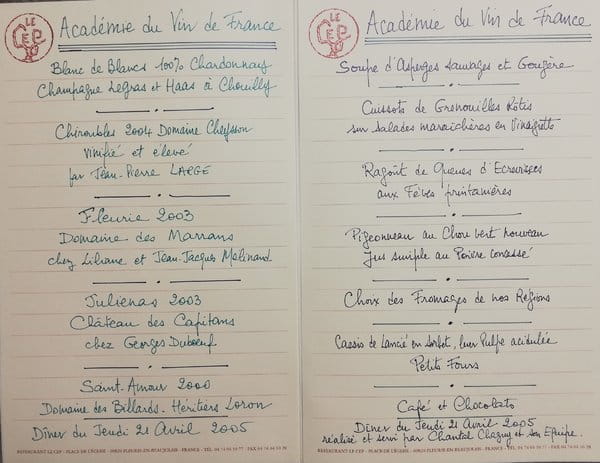 LE
CEP
Académie du Vin de France
Blanc de Blancs 100% Chardonnay
Champagne Legras et Haas à Chouilly
Chiroubles 2004 Domaine Cheysson
vinifié et élevé
par Jean-Pierre LARGE
Fleurie 2003
Domaine des Marrans
chez Liliane et Jean-Jacques Melinand
Julienas 2003
Château des Capitans
chez Georges Duboeuf
Saint-Amour 2000
Domaine des Billards. Héritiers Loron
Dîner du Jeudi 21 Avril 2005
RESTAURANT LE CEP - PLACE DE L'ÉGLISE - 69820 FLEURIE-EN-BEAUJOLAIS - FRANCE - TÉL
LE
CEP
Académie du Vin de France
Soupe d'Asperges sauvages et Gougère
Cuissots de Grenouilles Rôtis
sur salades maraîchères en Vinaigrette
Ragoût de Queues d'Ecrevisses
aux Fèves printanières
Pigeonneau au Chou vert nouveau
Jus simple au Poivre concassé
Choix des Fromages de nos Régions
Cassis de Lancié en sorbet, leur Pulpe acidulée
Petits Fours
Café et Chocolats
Dîner du Jeudi 21 Avril 2005
réalisé et servi par Chantal Chagny et son Equipe.
RESTAURANT LE CEP - PLACE DE L'ÉGLISE - 69820 FLEURIE-EN-BEAUJOLAIS - FRANCE - TÉL